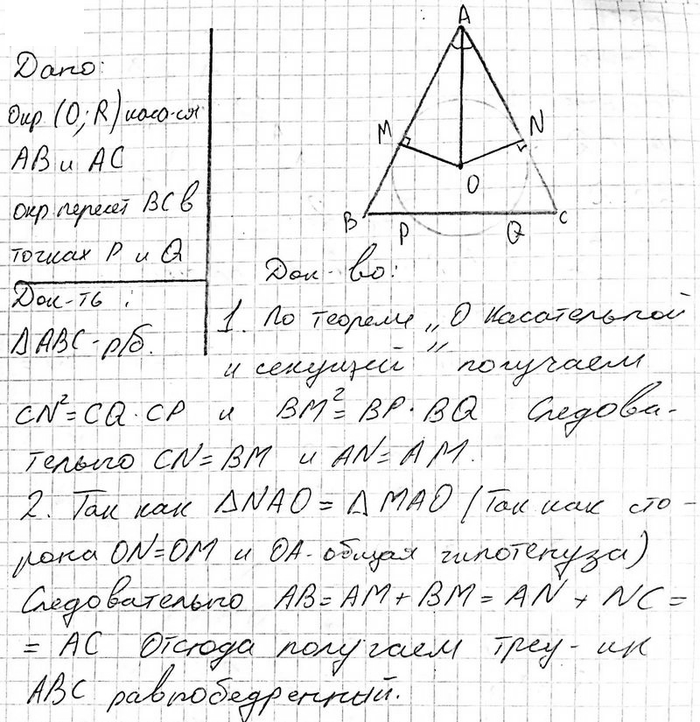 Дано:
Окр (O; R) кас-ся
AB и AC
окр пересек BC в
точках P и Q
Док-ть:
ΔABC - р/б.
A
M
N
O
B
P
Q
C
Док-во:
1. По теореме „О касательной
и секущей" получаем
CN²=CQ·CP и BM²=BP·BQ Следова-
тельно CN=BM и AN=AM.
2. Так как ΔNAO = ΔMAO (Так как сто-
рона ON=OM и OA-общая гипотенуза)
Следовательно AB=AM+BM=AN+NC=
=AC Отсюда получаем треу-ик
ABC равнобедренный.